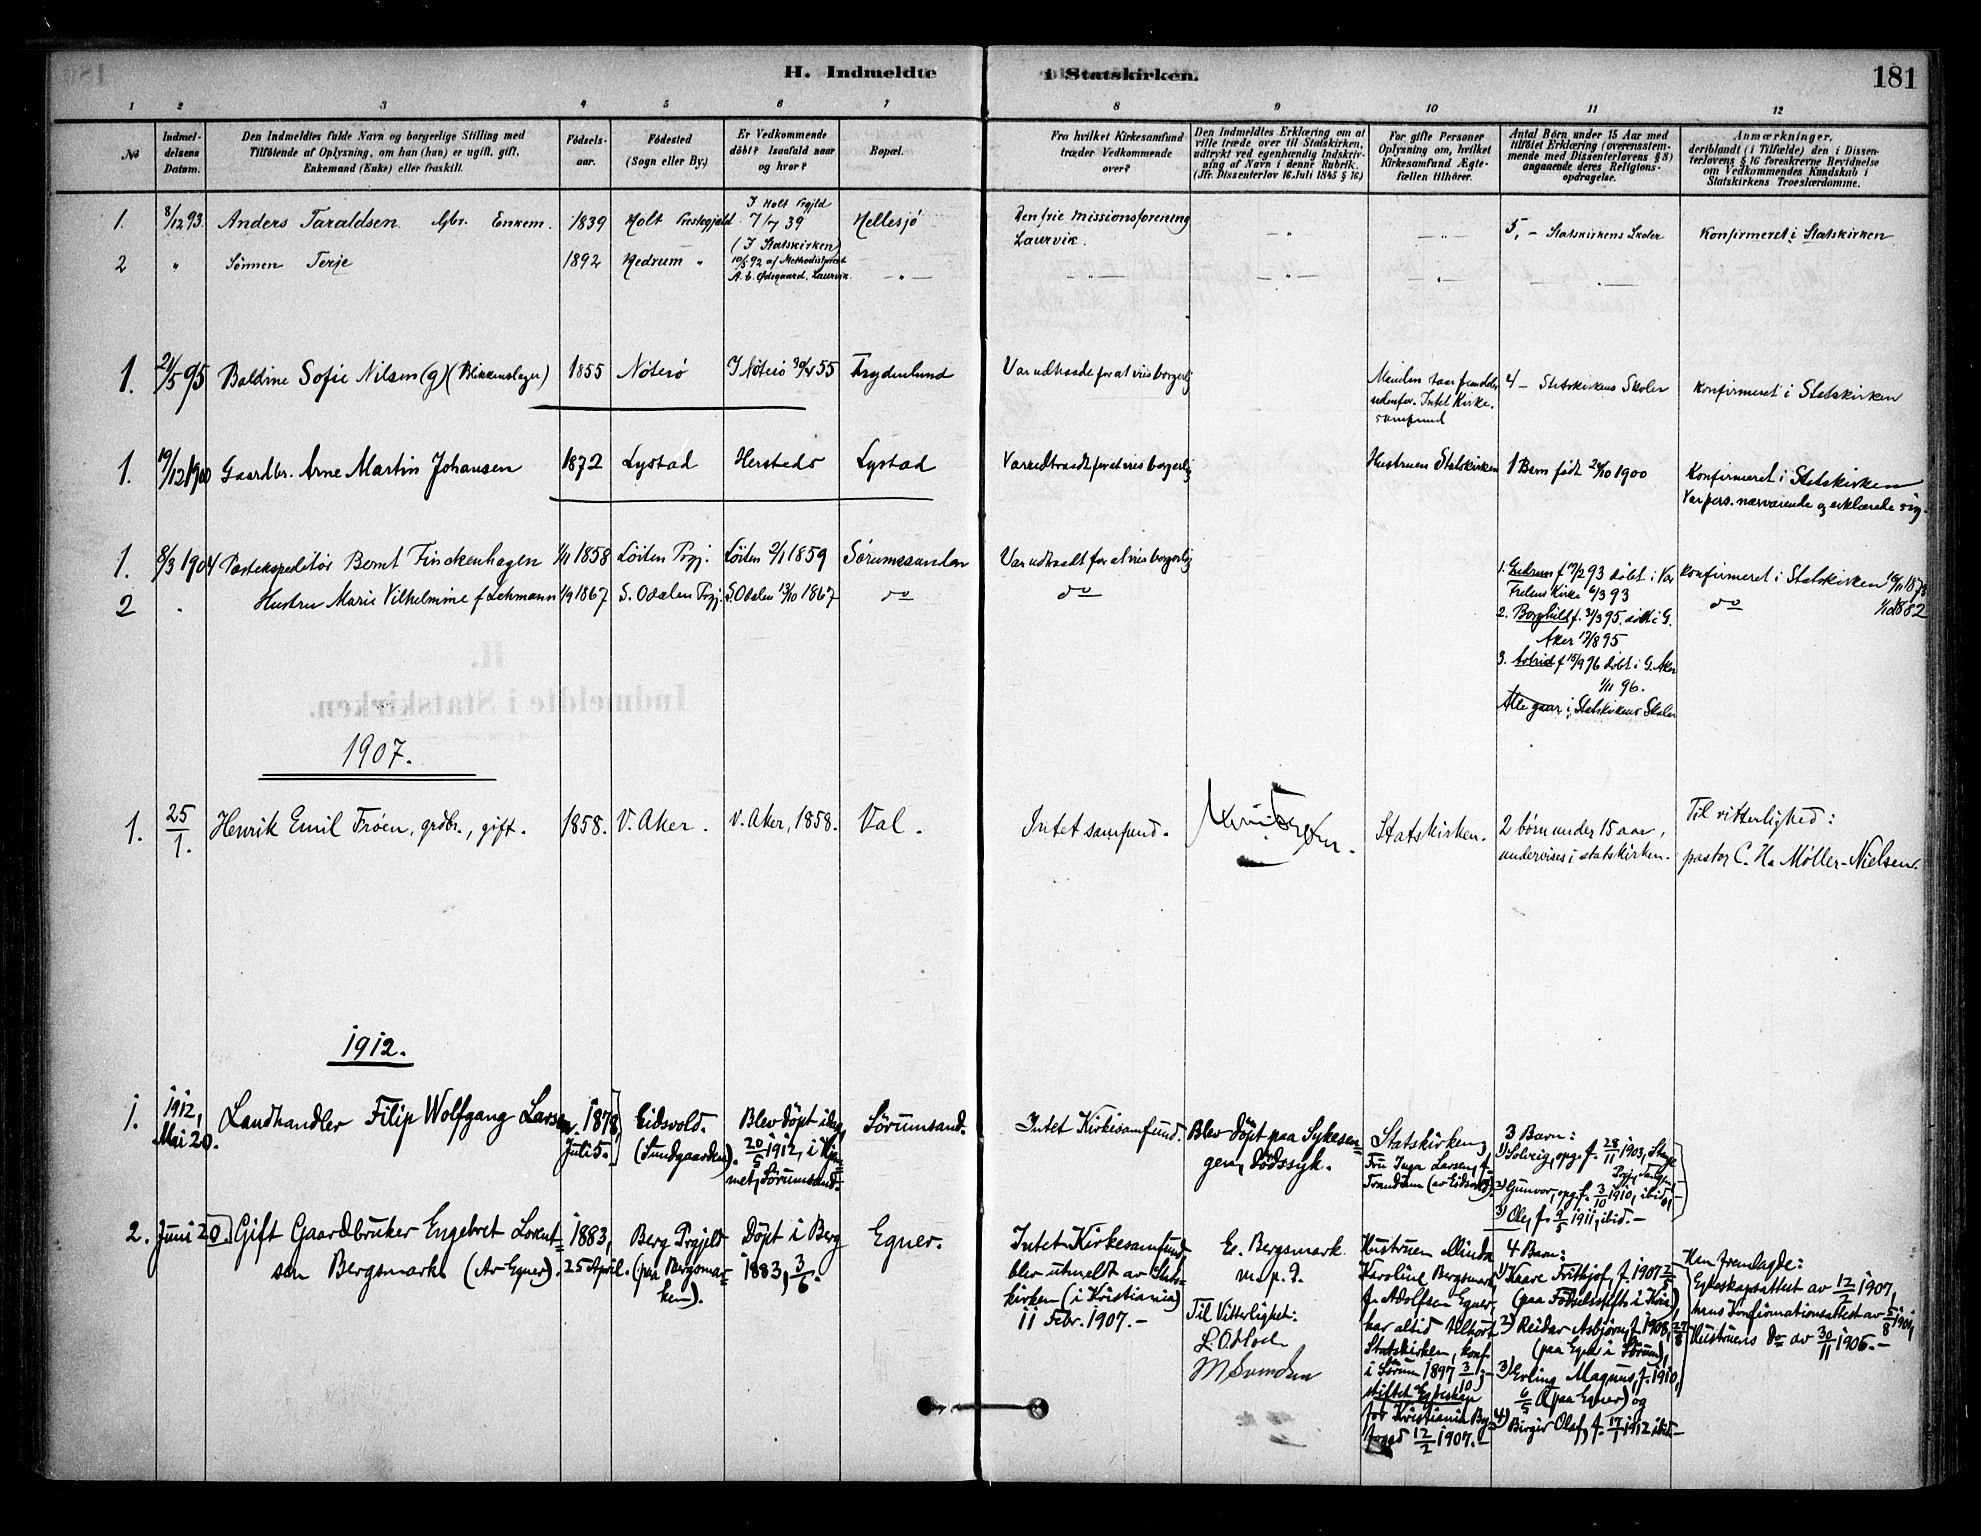 H. Indmeldte i Statskirken. 181
1 2 3 4 5 6 7 8 9 10 11 12
No
Indmel-
delsens
Datum.
Den Indmeldtes fulde Navn og borgerlige Stilling med
Tilføiende af Oplysning, om han (hun) er ugift, gift,
Enkemand (Enke) eller fraskilt.
Fødsels-
aar.
Fødested
(Sogn eller By.)
Er Vedkommende
døbt? Isaafald naar
og hvor?
Bopæl.
Fra hvilket Kirkesamfund
træder Vedkommende
over?
Den Indmeldtes Erklæring om at
ville træde over til Statskirken,
udtrykt ved egenhændig Indskriv-
ning af Navn i denne Rubrik.
(Jfr. Dissenterlov 16 Juli 1845 § 16)
For gifte Personer
Oplysning om, hvilket
Kirkesamfund Ægte-
fællen tilhører.
Antal Børn under 15 Aar med
tilføiet Erklæring (overensstem-
mende med Dissenterlovens § 8)
angaaende deres Religions-
opdragelse.
Anmærkninger,
deriblandt (i Tilfælde) den i Dissen-
terlovens § 16 foreskrevne Bevidnelse
om Vedkommendes Kundskab i
Statskirkens Troeslærdomme.
1. 8/12 93. Anders Taraldsen. Gbr. Enkem. 1839 Holt Prestegjeld
I Holt Prgjld
7/7 39
(I Statskirken)
Hellesjø
Den frie Missionsforening
Laurvik.
5, - Statskirkens Skoler
Konfirmeret i Statskirken
2 " Sønnen Terje 1892 Hedrum "
10/5 92 af Methodistprest
A. E. Ødegaard, Laurvik
1. 21/5 95 Baldine Sofie Nilsen (g) (Blikkenslager) 1855 Nøterø I Nøterø 55 Frydenlund
Var udtraadt for at vies borgerlig
Manden staar fremdeles
udenfor. Intet Kirke-
samfund
4 - Statskirkens Skoler
Konfirmeret i Statskirken
1. 19/12 1900 Gaardbr. Arne Martin Johansen 1872 Lystad Hersteds Lystad
Var udtraadt for at vies borgerlig
Hustruen Statskirken
1 Barn født 24/10 1900
Konfirmeret i Statskirken
Var pers. nærværende og erklærede sig.
1. 8/3 1904 Postekspeditør Bernt Finckenhagen 1/11 1858 Løiten Prgj. Løiten 2/1 1859 Sørumsanden
Var udtraadt for at vies borgerlig
2 " Hustru Marie Vilhelmine f Lehmann 1/9 1867 S. Odalen Prgj. S. Odalen 13/10 1867 do
do
1. Gudrun f 17/2 93 døbt i Vor
Frelsers Kirke 6/3 93
2. Borghild f. 31/3 95. døbt i G.
Aker 17/8 95
3. Astrid f 15/9 96 døbt i G. Aker
1/11 96.
Alle gaar i Statskirkens Skoler
Konfirmeret i Statskirken
do 1882
1907.
1. 25/1. Henrik Emil Frøen, grdbr., gift. 1858. V. Aker. V. Aker, 1858. Val.
Intet samfund.
Statskirken.
2 børn under 15 aar,
undervises i statskirken.
Til vitterlighed:
pastor C. H. Møller-Nielsen.
1912.
1. 1912,
Mai 20.
Landhandler Filip Wolfgang Larsen,
1878,
Juli 5.
Eidsvold.
(Sundgaarden).
Blev døpt
20/5 1912, i Hjem-
met, Sørumsand.
Sørumsand.
Intet Kirkesamfund.
Blev døpt paa Sykesen-
gen, dødssyk.
Statskirken,
Fru Inga Larsen, f.
3 Barn:
1) Solveig, opg. f. 28/11 1903,
2) Gunvor, opg. f. 3/10 1910, ibid,
3) Ole, f. 9/5 1911, ibid.-
2. Juni 20. Gift Gaardbruker Engebret Lorent-
sen Bergsmark. (Av Egner).
1883,
25 April.
Berg Prgjeld
(paa Bergsmar-
ken).
Døpt i Berg
1883, 3/6.
Egner.
Intet Kirkesamfund,
blev utmeldt av Stats-
kirken (i Kristiania)
11 Febr. 1907.-
E. Bergsmark
m. p. P.
Til Vitterlighet:
M Svendsen
Hustruen Minda
Karoline Bergsmark,
f. Adolfsen Egner,
har altid tilhørt
Statskirken, konf.
i Sørum 1897 3/10,
stiftet Egteskap
for Kristiania By-
foged 12/2 1907.-
4 Barn:
1) Kaare Frithjof, f. 1907 2/5
(paa Fødselsstift. i Kra),
2) Reidar Asbjørn, f. 1908, 27/8
(paa Egner i Sørum),
3) Erling Magnus, f. 1910,
6/5 (paa Egner) og
4) Birger Olaf, f. 17/1 1912 ibid.-
Han fremlagde:
Egteskapsattest av 12/2 1907,
hans Konfirmationsattest av 5/8 1901,
Hustruens do av 30/11 1906.-